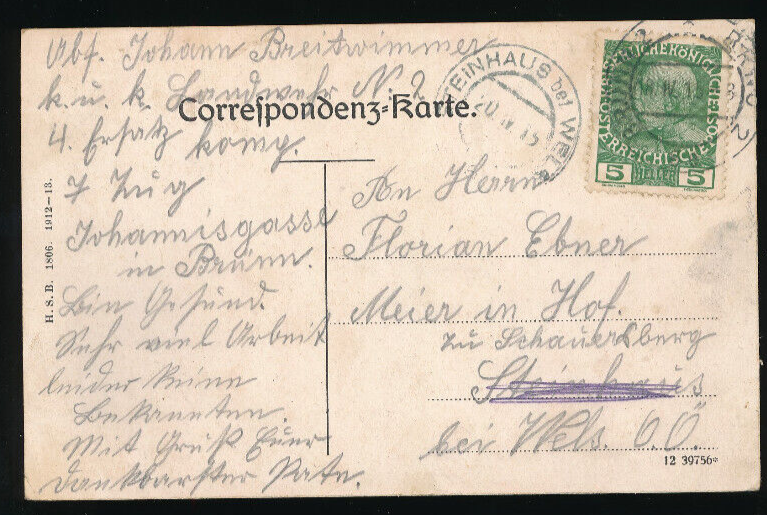 Abs. Johann Breitwimmer
k. u. k. Landwehr N: 2
4. Ersatz komp.
7 Zug
Johannisgasse
in Brünn.
Bin Gesund.
Sehr viel Arbeit
leider keine
Bekannten.
Mit Gruß Euer
dankbarster Pate.
Correspondenz-Karte.
STEINHAUS bei WELS
20 IV 15
BRÜNN
5 HELLER 5
An Herrn
Florian Ebner
Meier in Hof.
zu Schauersberg
Steinhaus
bei Wels. O.Ö.
H. S. B. 1806. 1912-13.
12 39756*